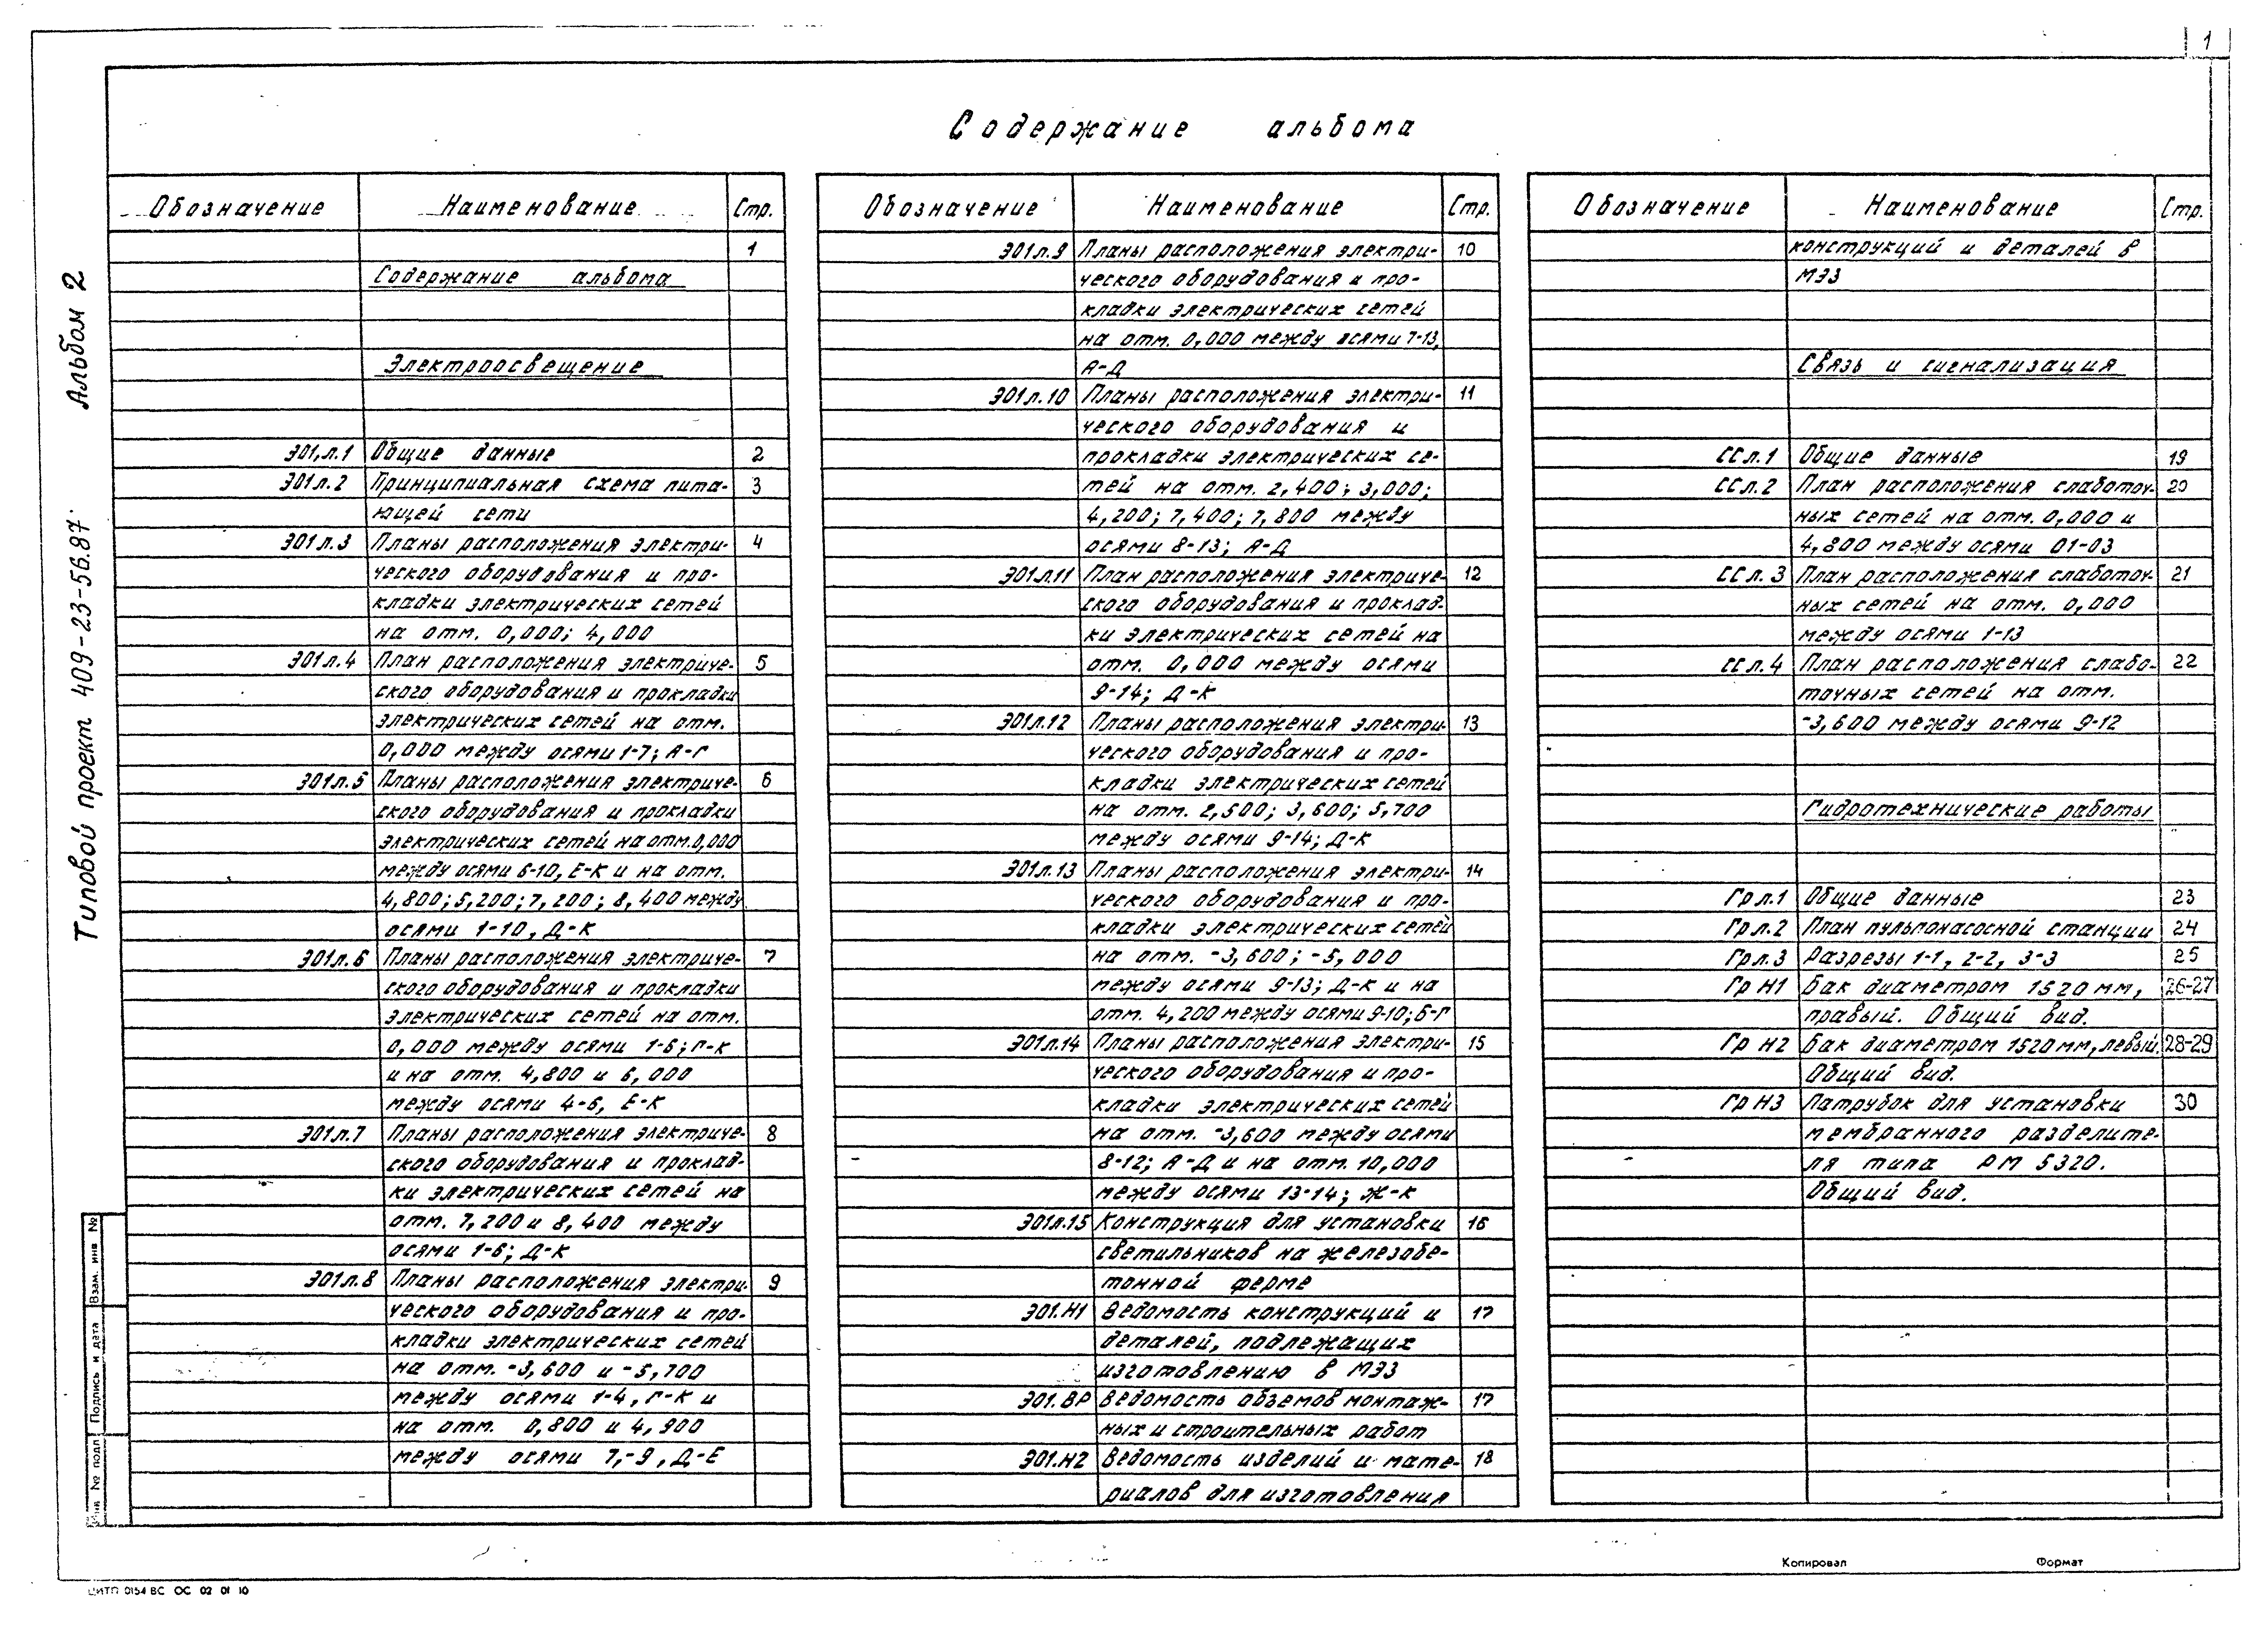 1
Содержание альбома
Типовой проект 409-23-56.87 Альбом 2
Обозначение Наименование Стр.
1
Содержание альбома
Электроосвещение
ЭО1,л.1 Общие данные 2
ЭО1л.2 Принципиальная схема пита- 3
ющей сети
ЭО1л.3 Планы расположения электри- 4
ческого оборудования и про-
кладки электрических сетей
на отм. 0,000; 4,000
ЭО1л.4 План расположения электриче- 5
ского оборудования и прокладки
электрических сетей на отм.
0,000 между осями 1-7; А-Г
ЭО1л.5 Планы расположения электриче- 6
ского оборудования и прокладки
электрических сетей на отм.0,000
между осями 6-10, Е-К и на отм.
4,800; 5,200; 7,200; 8,400 между
осями 1-10, Д-К
ЭО1л.6 Планы расположения электриче- 7
ского оборудования и прокладки
электрических сетей на отм.
0,000 между осями 1-6; Г-К
и на отм. 4,800 и 6,000
между осями 4-6, Е-К
ЭО1л.7 Планы расположения электриче- 8
ского оборудования и проклад-
ки электрических сетей на
отм. 7,200 и 8,400 между
осями 1-6; Д-К
ЭО1л.8 Планы расположения электри- 9
ческого оборудования и про-
кладки электрических сетей
на отм. -3,600 и -5,700
между осями 1-4, Г-К и
на отм. 0,800 и 4,900
между осями 7,-9, Д-Е
Обозначение Наименование Стр.
ЭО1л.9 Планы расположения электри- 10
ческого оборудования и про-
кладки электрических сетей
на отм. 0,000 между осями 7-13,
А-Д
ЭО1л.10 Планы расположения электри- 11
ческого оборудования и
прокладки электрических се-
тей на отм. 2,400; 3,000;
4,200; 7,400; 7,800 между
осями 8-13; А-Д
ЭО1л.11 План расположения электриче- 12
ского оборудования и проклад-
ки электрических сетей на
отм. 0,000 между осями
9-14; Д-К
ЭО1л.12 Планы расположения электри- 13
ческого оборудования и про-
кладки электрических сетей
на отм. 2,500; 3,600; 5,700
между осями 9-14; Д-К
ЭО1л.13 Планы расположения электри- 14
ческого оборудования и про-
кладки электрических сетей
на отм. -3,600; -5,000
между осями 9-13; Д-К и на
отм. 4,200 между осями 9-10; Б-Г
ЭО1л.14 Планы расположения электри- 15
ческого оборудования и про-
кладки электрических сетей
на отм. -3,600 между осями
8-12; А-Д и на отм. 10,000
между осями 13-14; Ж-К
ЭО1л.15 Конструкция для установки 16
светильников на железобе-
тонной ферме
ЭО1.Н1 Ведомость конструкций и 17
деталей, подлежащих
изготовлению в МЭЗ
ЭО1.ВР Ведомость обземов монтаж- 17
ных и строительных работ
ЭО1.Н2 Ведомость изделий и мате- 18
риалов для изготовления
Обозначение Наименование Стр.
конструкций и деталей в
МЭЗ
Связь и сигнализация
СС л.1 Общие данные 19
СС л.2 План расположения слаботоч- 20
ных сетей на отм. 0,000 и
4,800 между осями 01-03
СС л.3 План расположения слаботоч- 21
ных сетей на отм. 0,000
между осями 1-13
СС л.4 План расположения слабо- 22
точных сетей на отм.
-3,600 между осями 9-12
Гидротехнические работы
Гр л.1 Общие данные 23
Гр л.2 План пульпонасосной станции 24
Гр л.3 Разрезы 1-1, 2-2, 3-3 25
Гр Н1 Бак диаметром 1520 мм, 26-27
правый. Общий вид.
Гр Н2 Бак диаметром 1520 мм, левый. 28-29
Общий вид.
Гр Н3 Патрубок для установки 30
мембранного разделите-
ля типа РМ 5320.
Общий вид.
Взам. инв №
Подпись и дата
Инв. № подл
Копировал Формат
ЦИТП 0154 ВС ОС 02 01 10